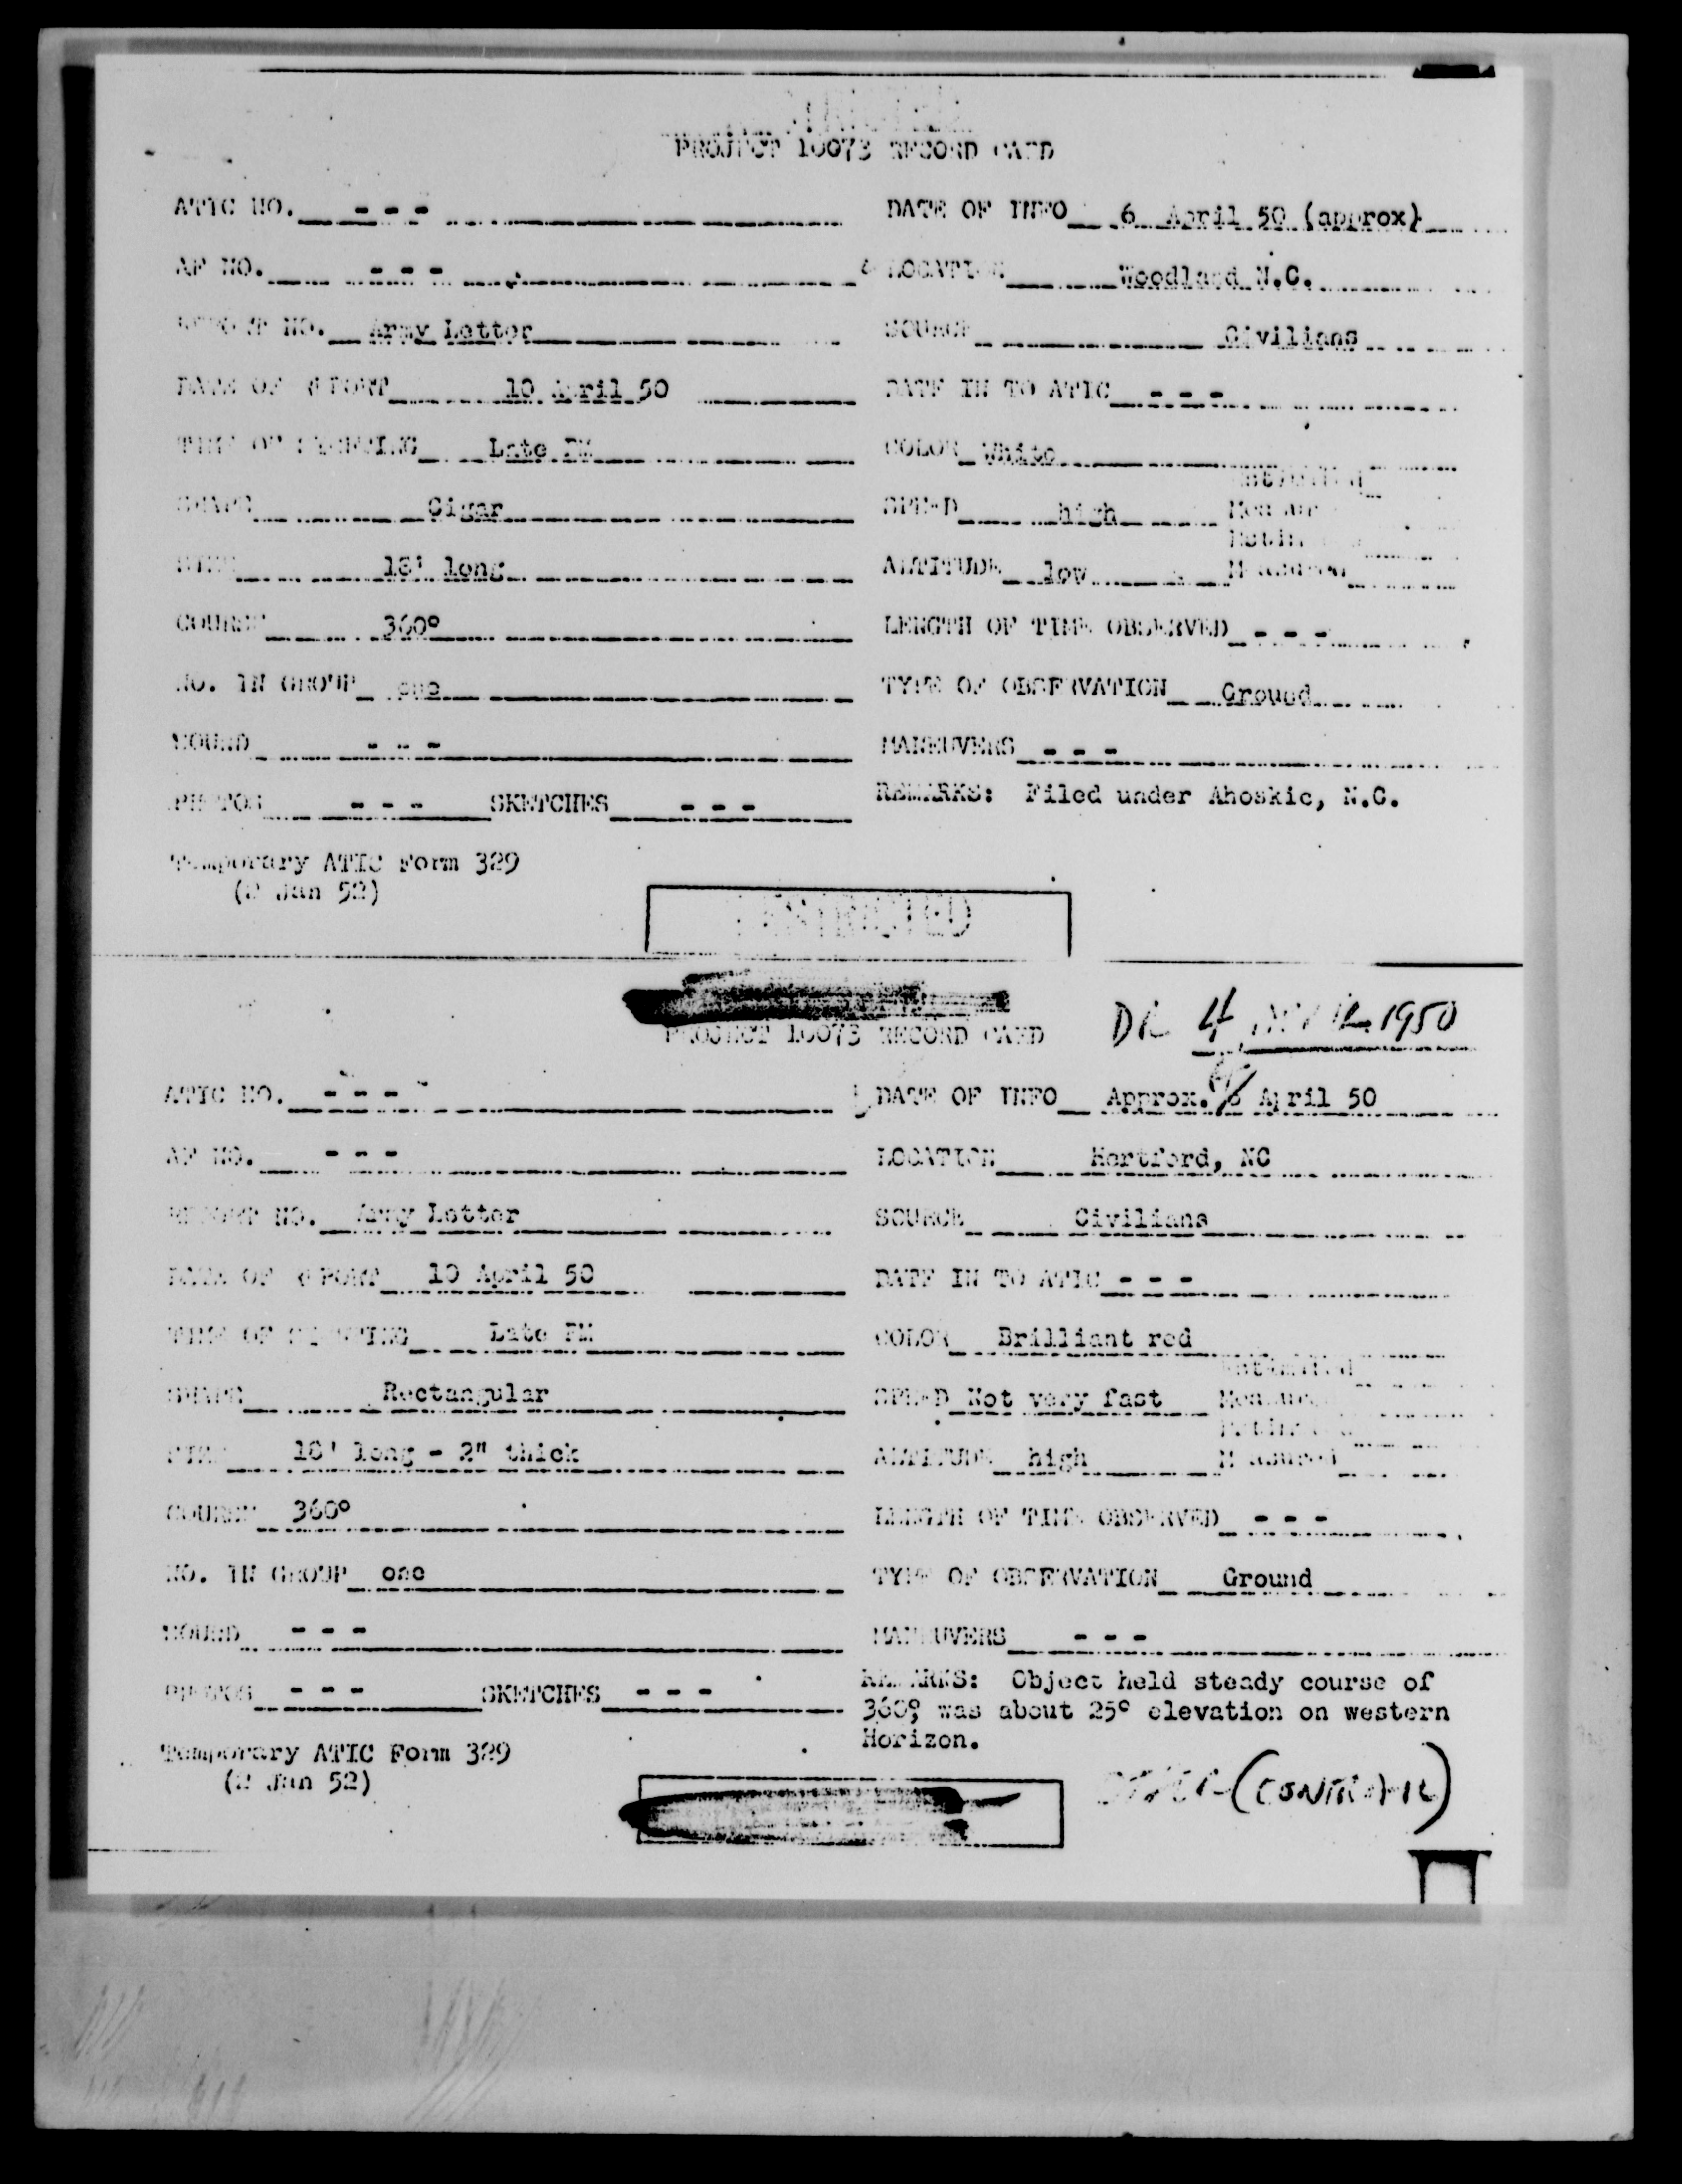 PROJECT 10073 RECORD CARD
ATIC NO. - - - DATE OF INFO 6 April 50 (approx)
AF NO. - - - LOCATION Woodland N.C.
REPORT NO. Army Letter SOURCE Civilians
DATE OF REPORT 10 April 50 DATE IN TO ATIC - - -
TIME OF SIGHTING Late PM COLOR White
SHAPE Cigar SPEED high Estimated Measured
SIZE 18' long ALTITUDE low Estimated Measured
COURSE 360° LENGTH OF TIME OBSERVED - - -
NO. IN GROUP one TYPE OF OBSERVATION Ground
SOUND - - - MANEUVERS - - -
PHOTOS - - - SKETCHES - - - REMARKS: Filed under Ahoskie, N.C.
Temporary ATIC Form 329
(2 Jan 52)
RESTRICTED
PROJECT 10073 RECORD CARD 4 1950
ATIC NO. - - - DATE OF INFO Approx. April 50
AF NO. - - - LOCATION Hertford, NC
REPORT NO. Army Letter SOURCE Civilians
DATE OF REPORT 10 April 50 DATE IN TO ATIC - - -
TIME OF SIGHTING Late PM COLOR Brilliant red
SHAPE Rectangular SPEED Not very fast Estimated Measured
SIZE 18' long - 2" thick ALTITUDE high Estimated Measured
COURSE 360° LENGTH OF TIME OBSERVED - - -
NO. IN GROUP one TYPE OF OBSERVATION Ground
SOUND - - - MANEUVERS - - -
PHOTOS - - - SKETCHES - - - REMARKS: Object held steady course of
360°, was about 25° elevation on western
Horizon.
Temporary ATIC Form 329
(2 Jan 52)
(CONTRAIL)